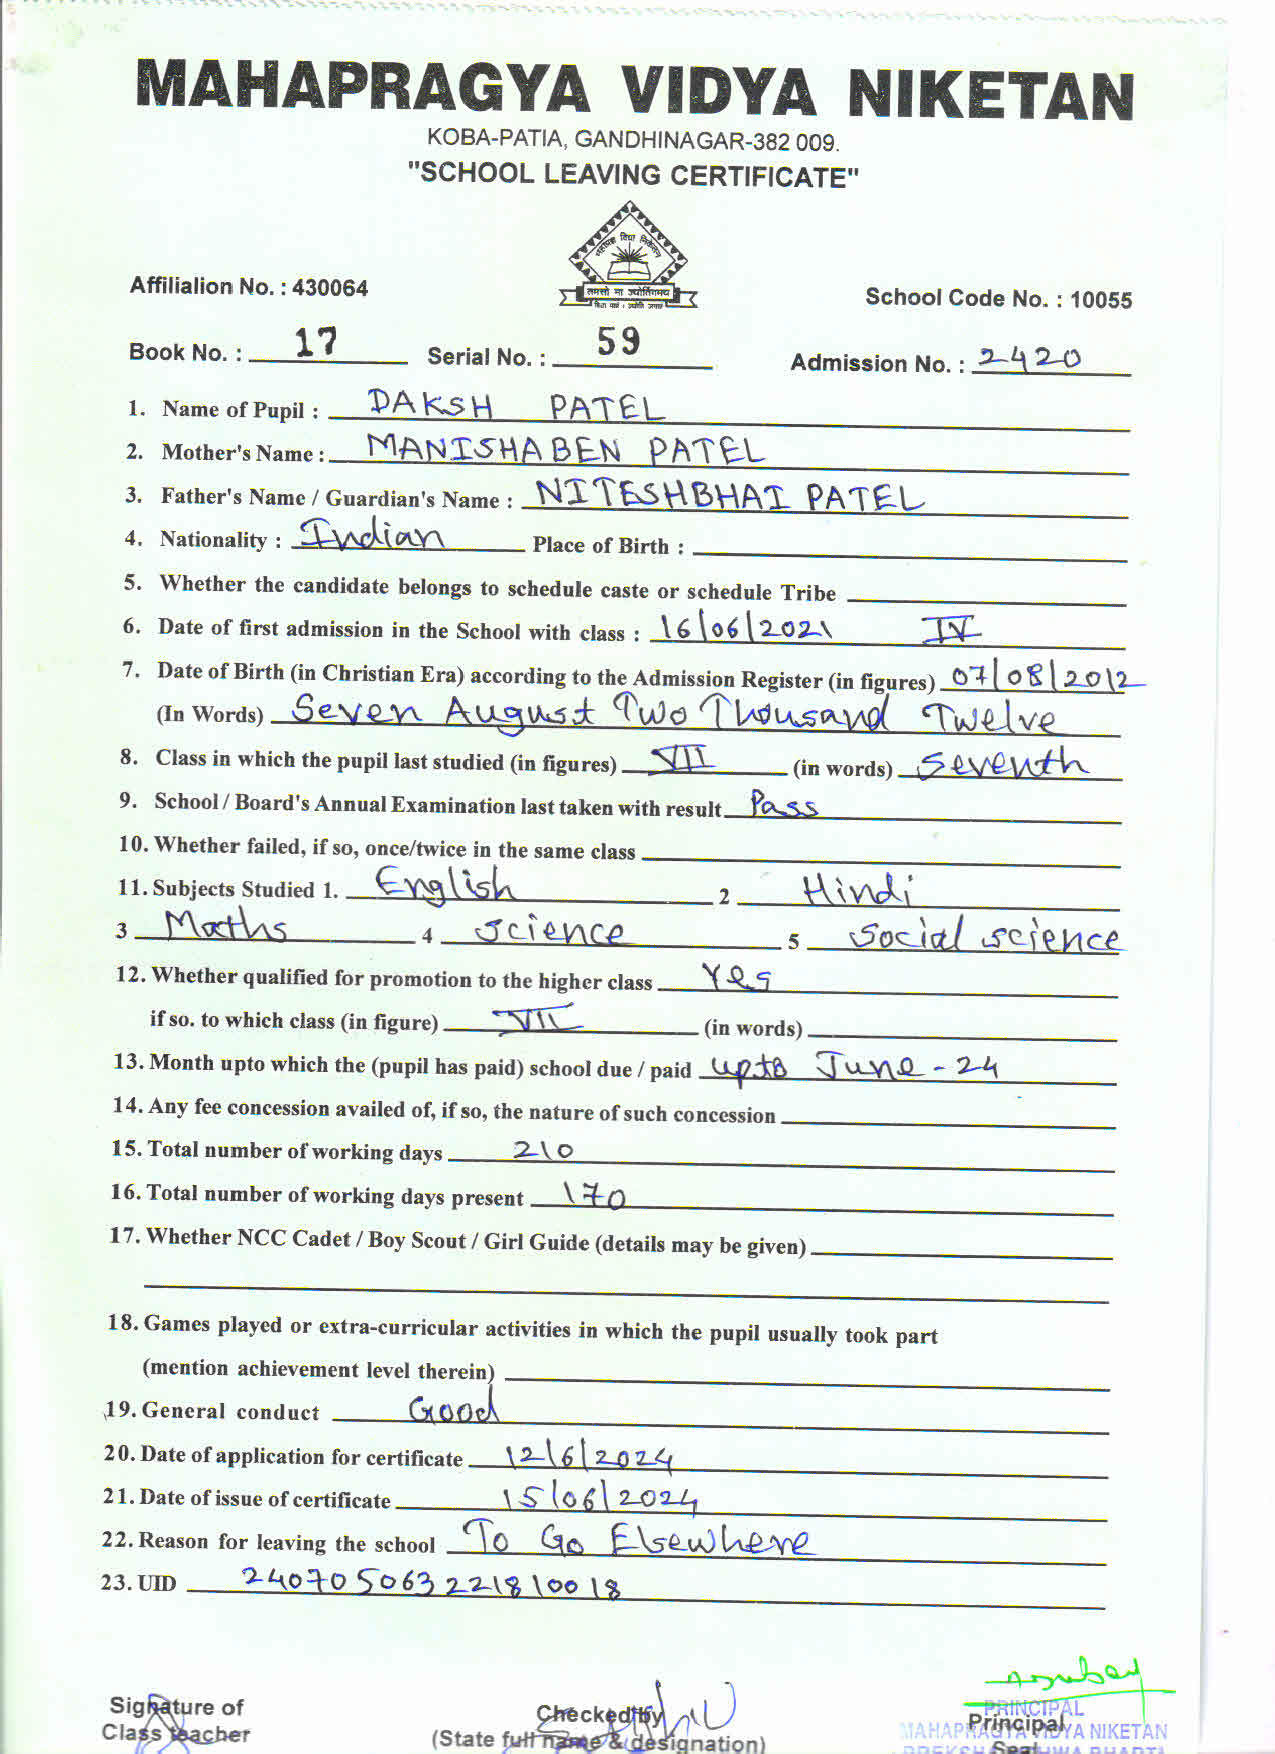 MAHAPRAGYA VIDYA NIKETAN
KOBA-PATIA, GANDHINAGAR-382 009.
"SCHOOL LEAVING CERTIFICATE"
महाप्रज्ञ विद्या निकेतन
तमसो मा ज्योतिर्गमय
Affilialion No. : 430064
School Code No. : 10055
Book No. : 17 Serial No. : 59 Admission No. : 2420
1. Name of Pupil : DAKSH PATEL
2. Mother's Name : MANISHABEN PATEL
3. Father's Name / Guardian's Name : NITESHBHAI PATEL
4. Nationality : Indian Place of Birth :
5. Whether the candidate belongs to schedule caste or schedule Tribe
6. Date of first admission in the School with class : 16/06/2021 IV
7. Date of Birth (in Christian Era) according to the Admission Register (in figures) 07/08/2012
(In Words) Seven August Two Thousand Twelve
8. Class in which the pupil last studied (in figures) VII (in words) Seventh
9. School / Board's Annual Examination last taken with result Pass
10. Whether failed, if so, once/twice in the same class
11. Subjects Studied 1. English 2 Hindi
3 Maths 4 Science 5 Social science
12. Whether qualified for promotion to the higher class Yes
if so. to which class (in figure) VII (in words)
13. Month upto which the (pupil has paid) school due / paid upto June-24
14. Any fee concession availed of, if so, the nature of such concession
15. Total number of working days 210
16. Total number of working days present 170
17. Whether NCC Cadet / Boy Scout / Girl Guide (details may be given)
18. Games played or extra-curricular activities in which the pupil usually took part
(mention achievement level therein)
19. General conduct Good
20. Date of application for certificate 12/6/2024
21. Date of issue of certificate 15/06/2024
22. Reason for leaving the school To Go Elsewhere
23. UID 240705063221810018
Signature of Checked by PRINCIPAL
Class teacher (State full name & designation) Principal
MAHAPRAGYA VIDYA NIKETAN
Seal